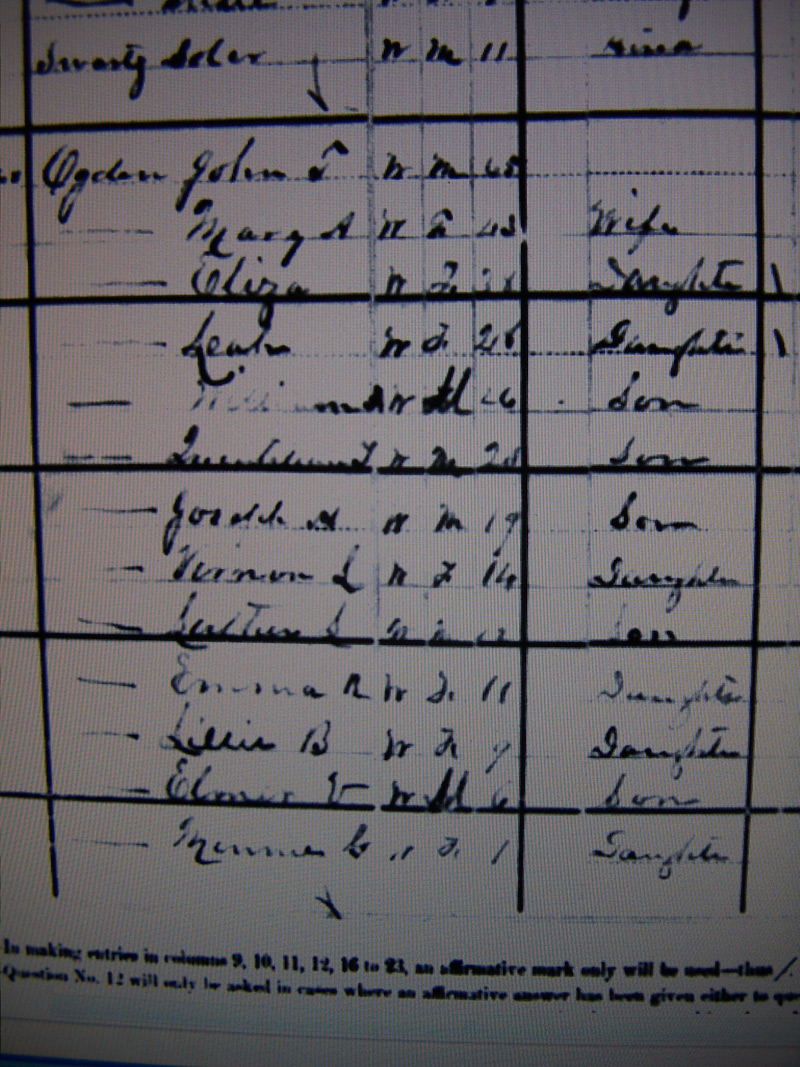 Swartz W M 11
Ogden John T W M
Mary A W F 43 Wife
Eliza W F Daughter \
Leah W F 26 Daughter \
W M 26 Son
W M Son
Joseph H W M 19 Son
Vernon L W F 14 Daughter
Luther S W M 12 Son
Emma R W F 11 Daughter
Lillie B W F 9 Daughter
Elmer V W M 6 Son
Minnie G " F 1 Daughter
In making entries in columns 9, 10, 11, 12, 16 to 23, an affirmative mark only will be used—thus /.
Question No. 12 will only be asked in cases where an affirmative answer has been given either to